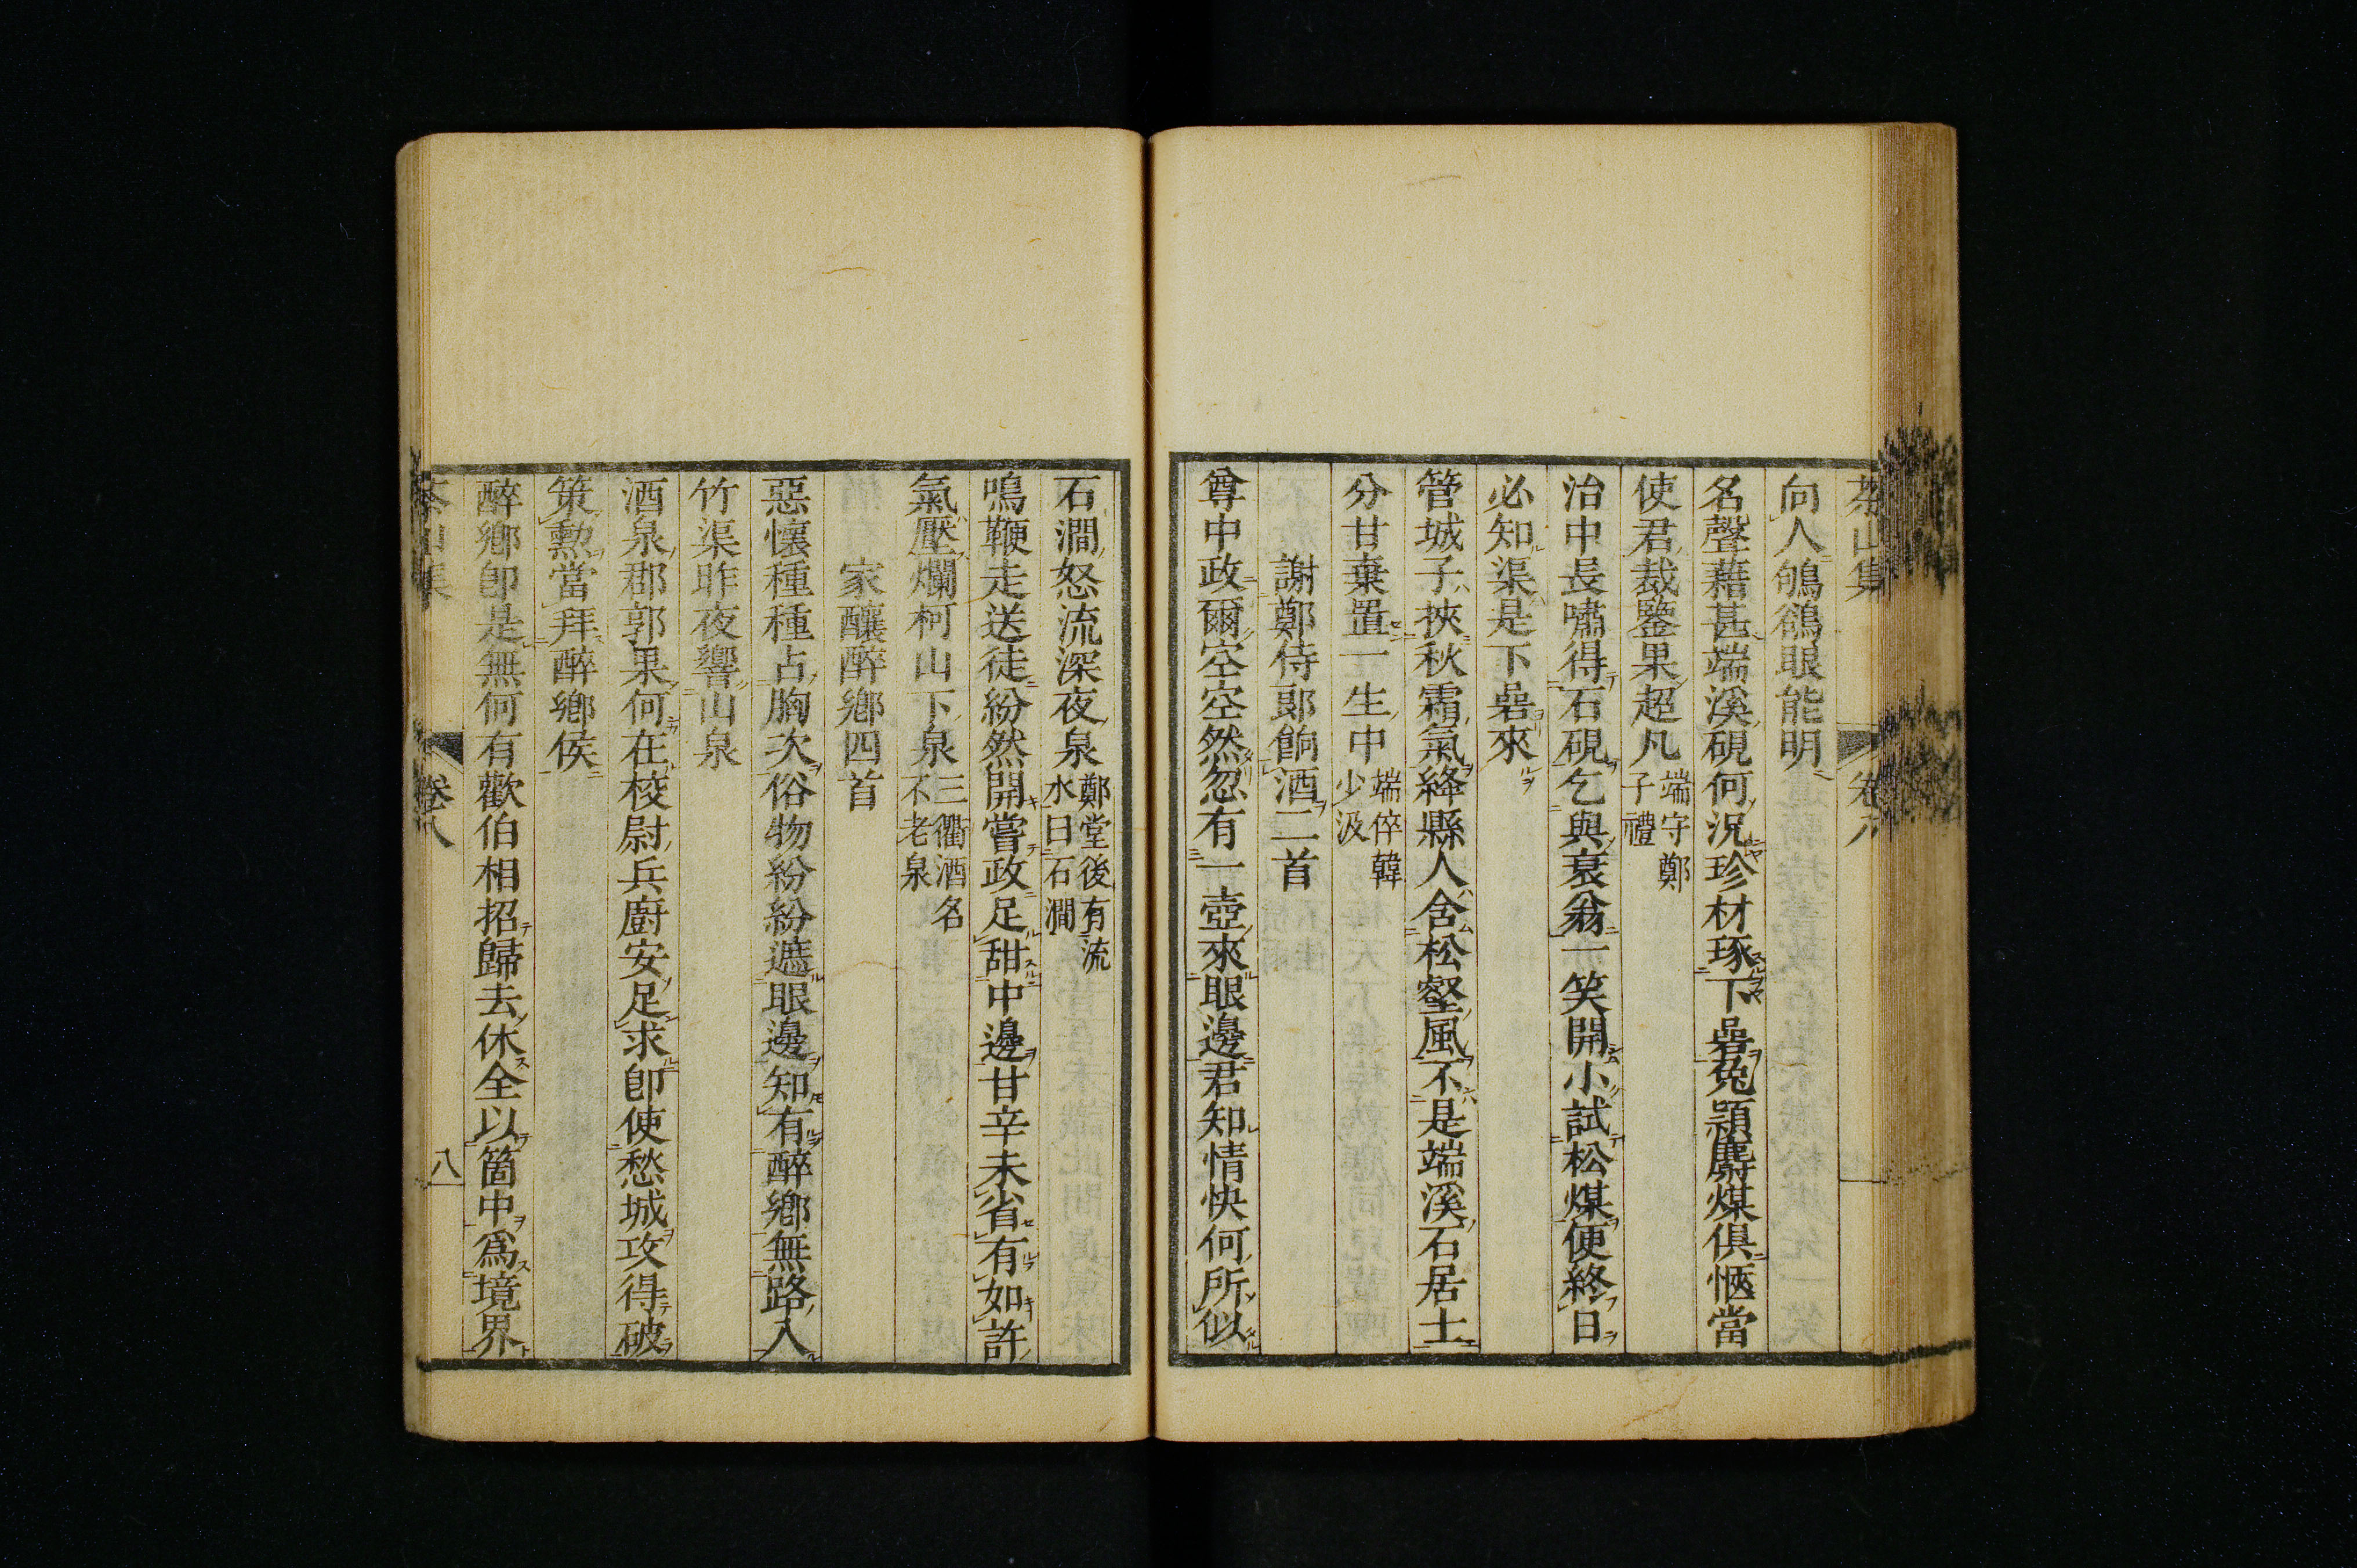 茶山集 卷八
向人鴝鵒眼能明
名聲藉甚端溪硯何況珍材琢下嵒兔穎麝煤俱惬當
使君裁鑒果超凡端守鄭子禮
治中長嘯得石硯乞與衰翁一笑開小試松煤便終日
必知渠是下嵒來
管城子挾秋霜氣絳縣人含松壑風不是端溪石居士
分甘棄置一生中端倅韓少汲
謝鄭侍郎餉酒二首
尊中政爾空空然忽有一壺來眼邊君知情怏何所似
石澗怒流深夜泉鄭堂後有流水曰石澗
鳴鞭走送徒紛然開嘗政足甜中邊甘辛未省有如許
氣壓爛柯山下泉三衢酒名不老泉
家釀醉鄉四首
惡懷種種占胸次俗物紛紛遮眼邊知有醉鄉無路入
竹渠昨夜響山泉
酒泉郡郭果何在校尉兵廚安足求卽使愁城攻得破
策勲當拜醉鄉侯
醉鄉卽是無何有歡伯相招歸去休全以箇中爲境界
茶山集 卷八 八